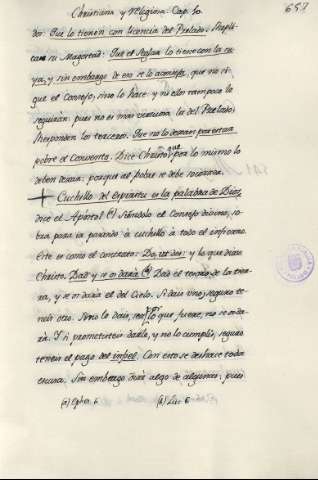 Christiana y religiosa. Cap. 10.
657
dos: Que lo tienen con licencia del Prelado. Replic
tara su Magestad: Que el Seglar lo tiene con la su
ya, y sin embargo de eso se le aconseja, que no si
que el Consejo, sino lo hace: y ni ellos tampoco le
seguirán pues no es mas la del Prelado;
Responden los terceros. Que no lo dexan por estar
pobre el Convento. Dice Christo, que por lo mismo lo
deben dexar: porque al pobre se debe socorrer.
Cuchillo del Espiritu es la palabra de Dios,
dice el Apóstol (a) Siendolo el Consejo divino, so
bra para ir pasando à cuchillo à todo el infierno.
Este es como el contrato: Do, ut des: y lo que dixo
Christo. Dad y se os dará (b) Dad el terreno de la tier
ra, y se os dará el del Cielo. Si dais uno, seguro te
neis otro. Sino lo dais, sea lo que fuere, no se os da
rà. Y si prometisteis darlo, y no lo cumplis, seguro
teneis el pago del infiel. Con esto se deshace toda
escusa. Sin embargo dirà algo de algunas; pues
(a) Ephes. 6 (b) Luc. 6